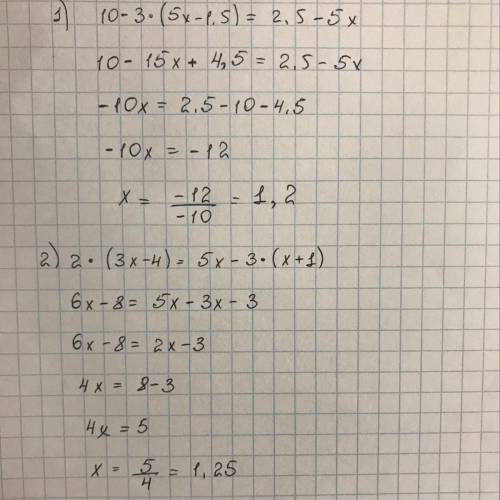 1) 10-3·(5x-1,5)= 2.5-5x
10-15x+4,5=2.5-5x
-10x=2.5-10-4.5
-10x=-12
x= -12/-10 = 1,2
2) 2·(3x-4)= 5x-3·(x+1)
6x-8= 5x-3x-3
6x-8=2x-3
4x= 8-3
4x=5
x= 5/4 = 1,25